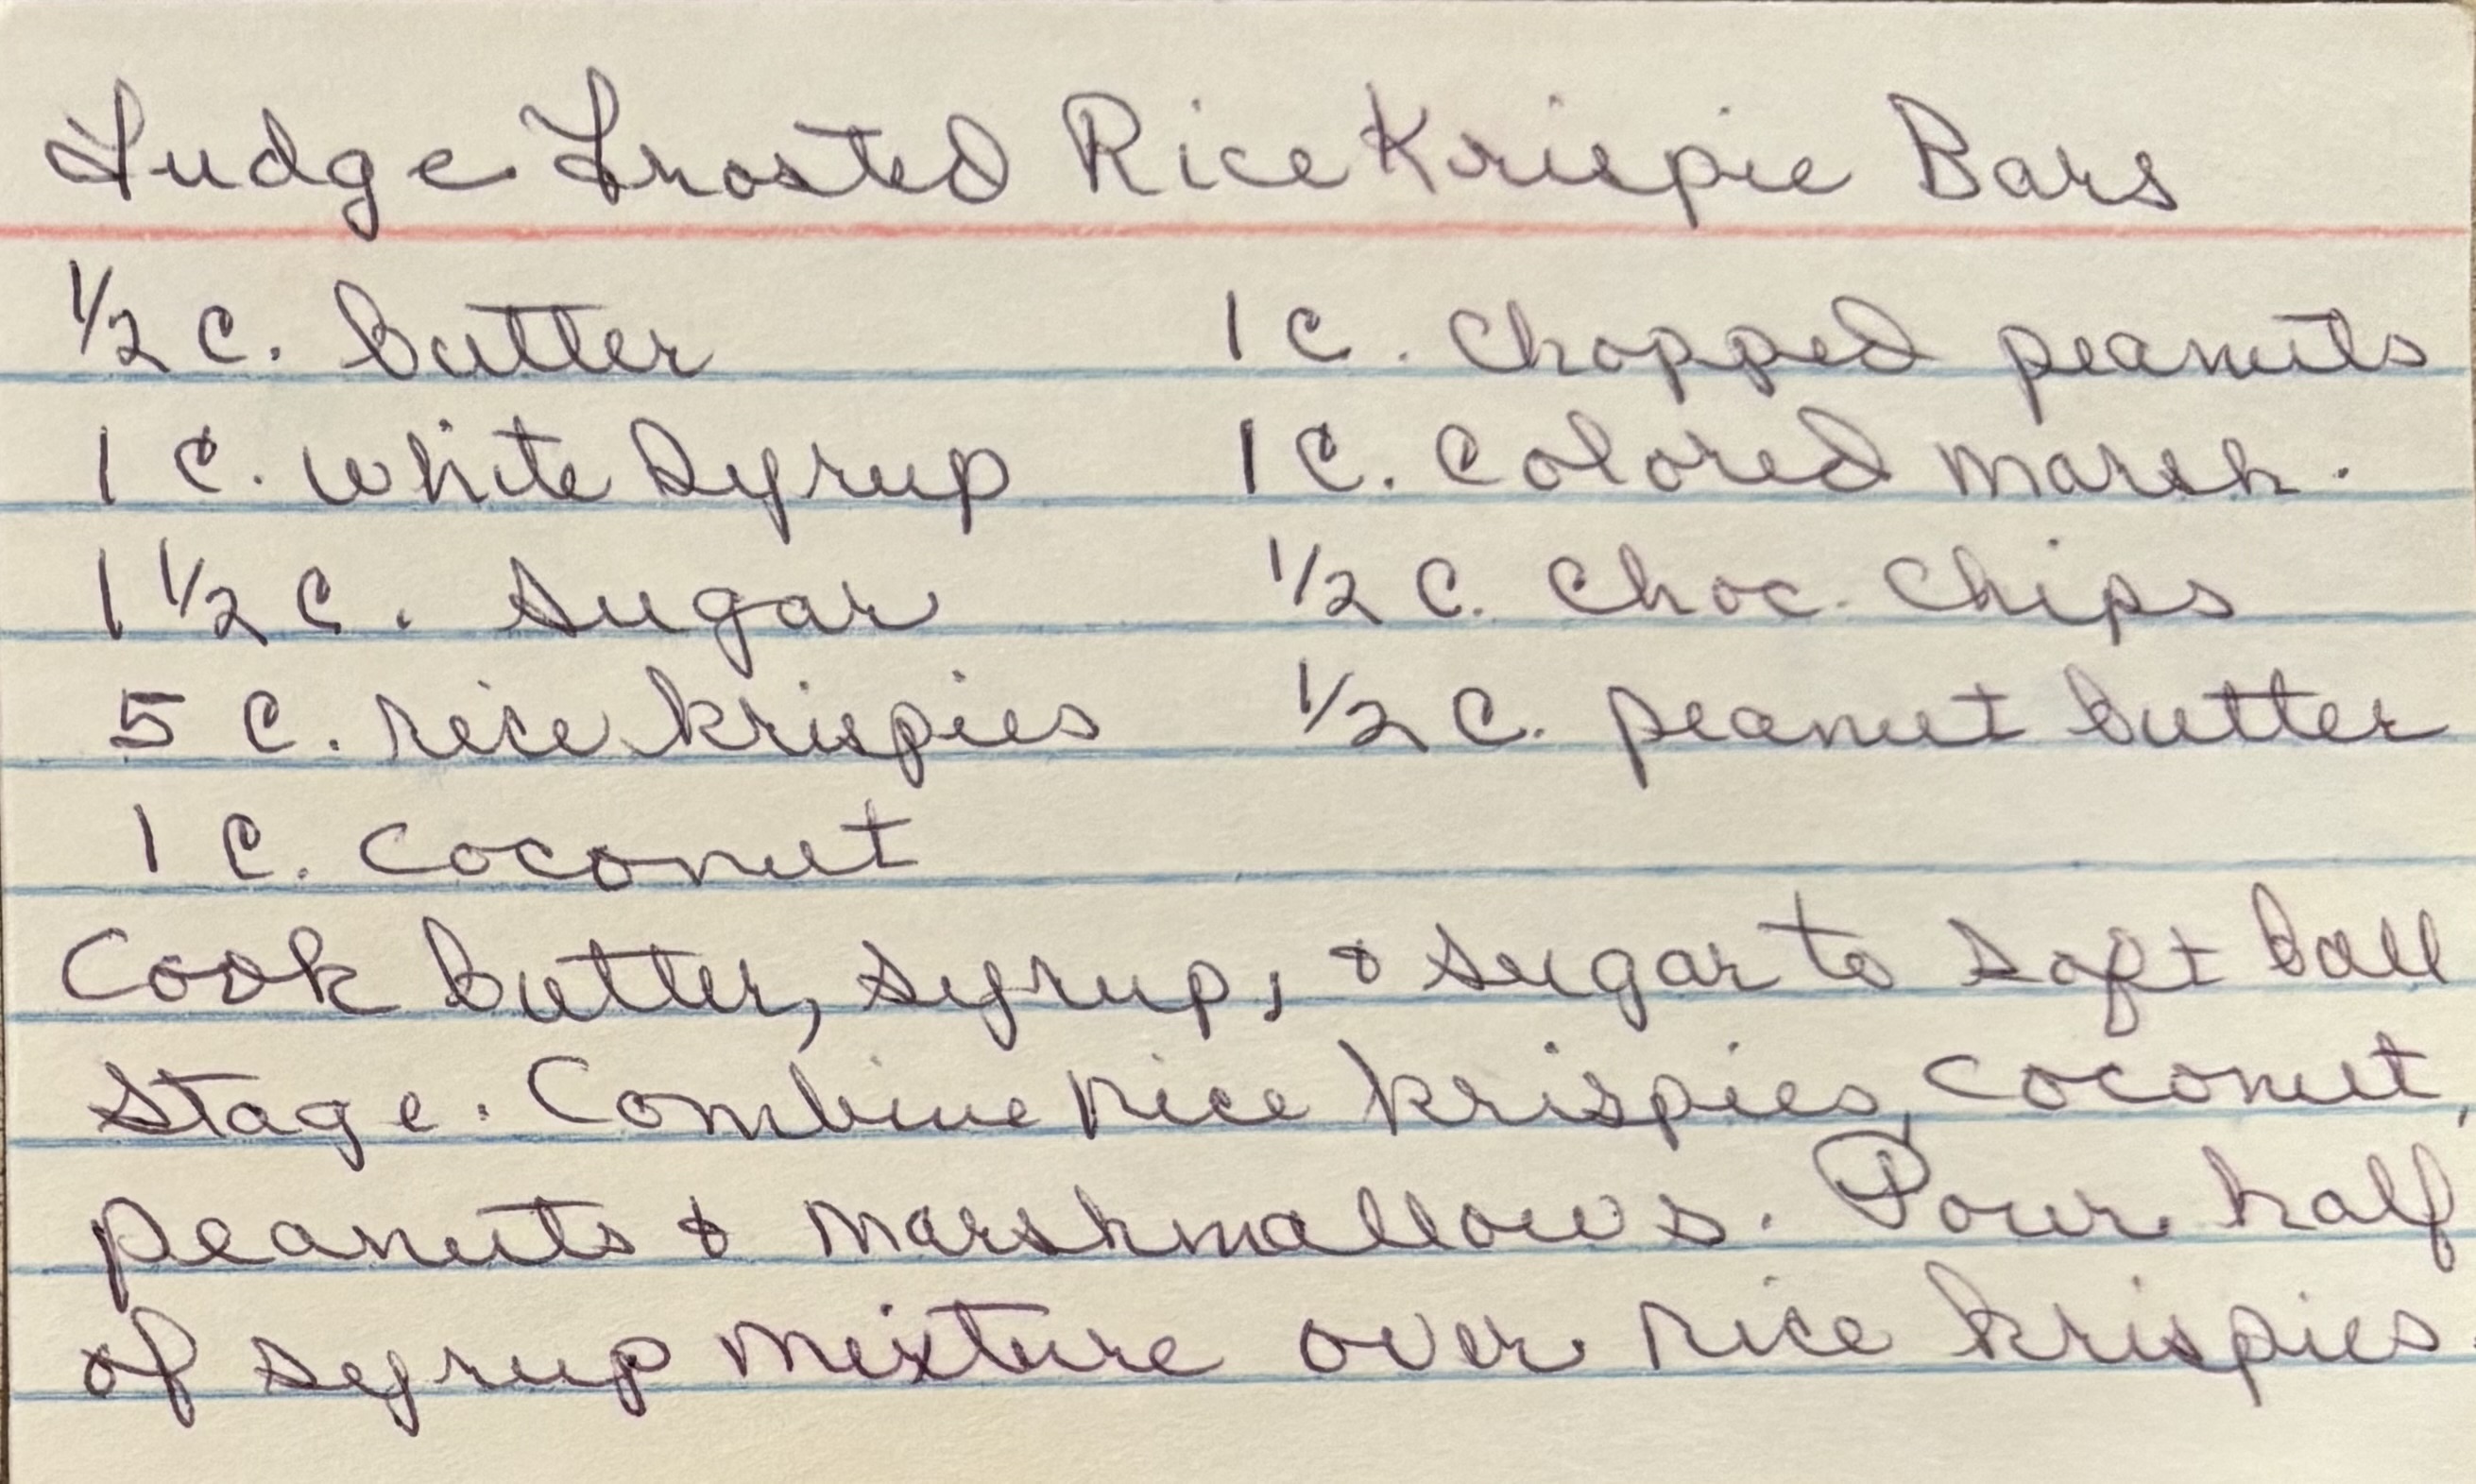 Fudge Frosted Rice Krispie Bars
1/2 c. butter
1 c. white syrup
1 1/2 c. sugar
5 c. rice krispies
1 c. coconut
1 c. chopped peanuts
1 c. colored marsh.
1/2 c. choc. chips
1/2 c. peanut butter
Cook butter, syrup, & sugar to soft ball
stage. Combine rice krispies, coconut,
peanuts & marshmallows. Pour half
of syrup mixture over rice krispies.